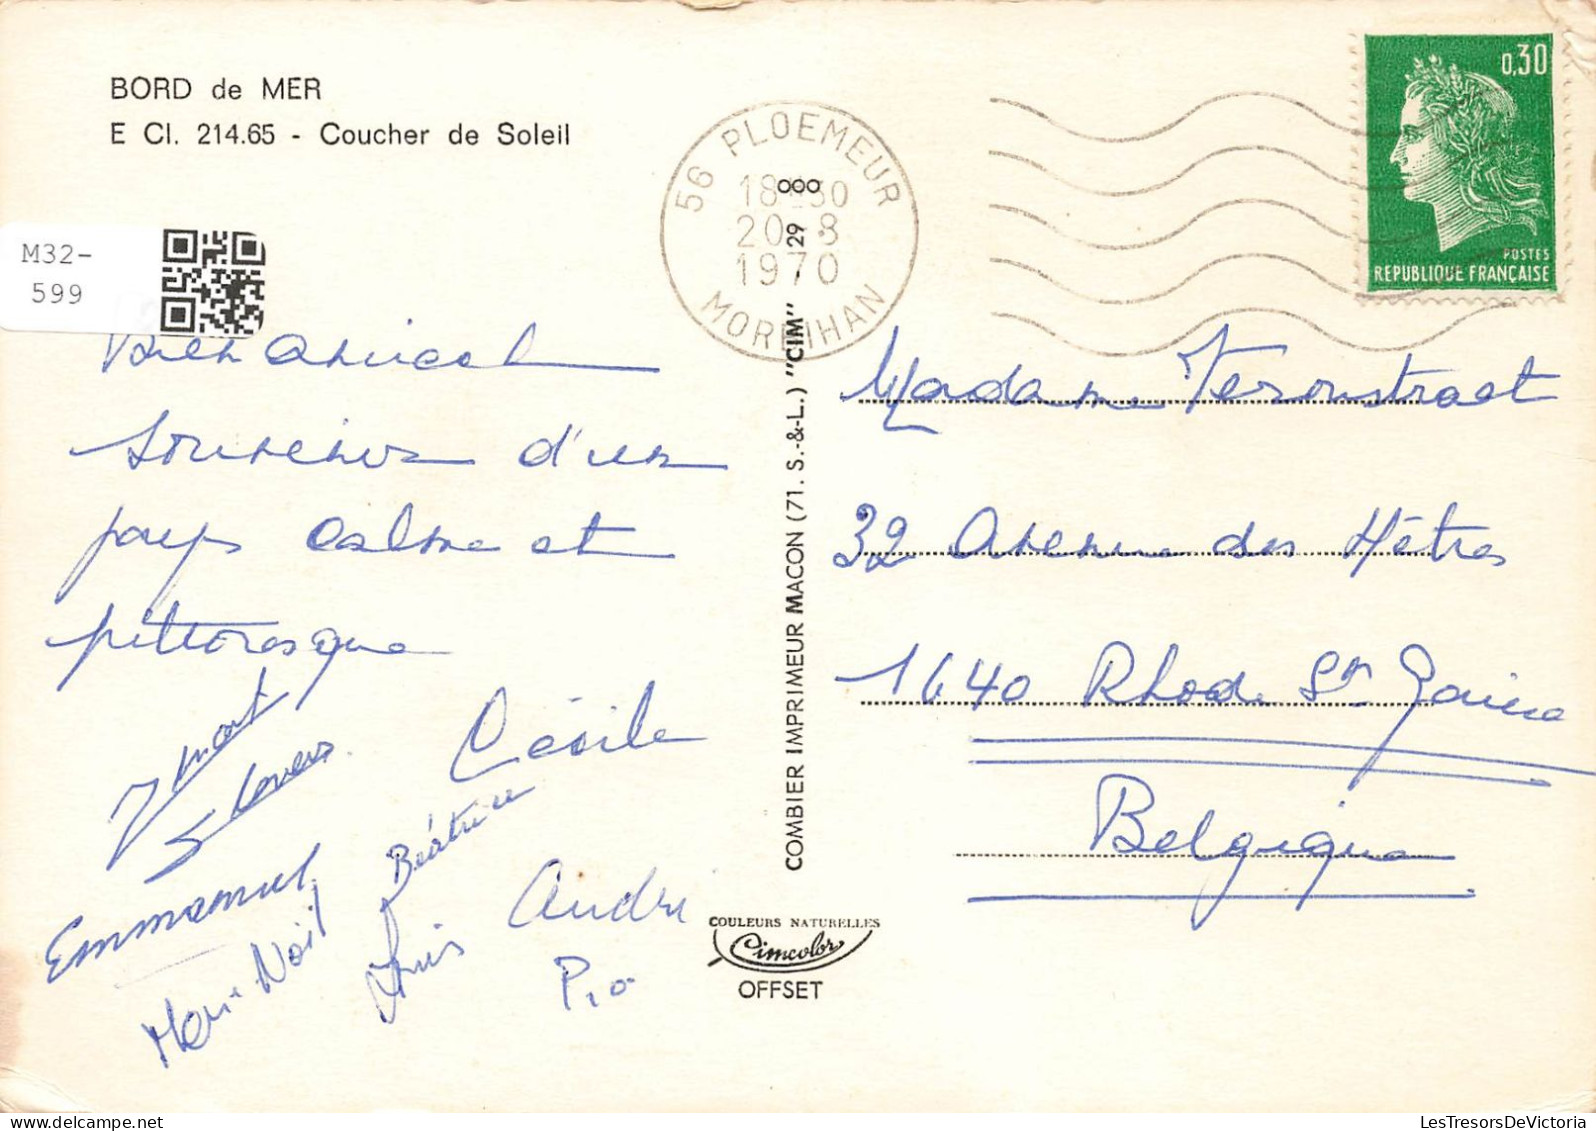 BORD de MER
E Cl. 214.65 - Coucher de Soleil
M32-
599
56 PLOEMEUR
18H30
20-8
1970
MORBIHAN
0,30
POSTES
REPUBLIQUE FRANÇAISE
Bien amical
souvenir d'un
pays calme et
pittoresque
Cécile
Béatrice
Emmanuel
André
Marie Noël
Louis
Pio
COMBIER IMPRIMEUR MACON (71. S.-&-L.) "CIM" - 29
COULEURS NATURELLES
Cimcolor
OFFSET
Madame Teronstraet
32 Avenue des Hêtres
1640 Rhode St Genèse
Belgique
LesTresorsDeVictoria.com